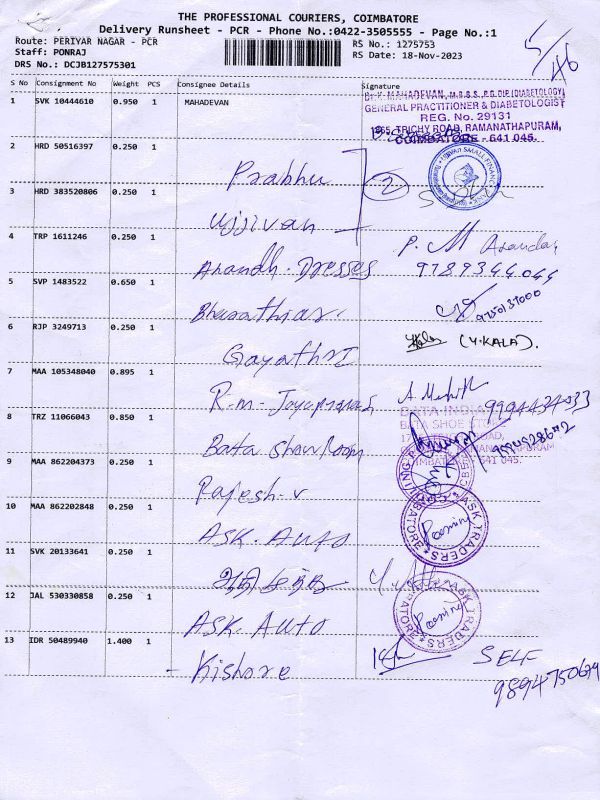 THE PROFESSIONAL COURIERS, COIMBATORE
Delivery Runsheet - PCR - Phone No.:0422-3505555 - Page No.:1
Route: PERIYAR NAGAR - PCR
Staff: PONRAJ
DRS No.: DCJB127575301
RS No.: 1275753
RS Date: 18-Nov-2023
5/46
S No Consignment No Weight PCS Consignee Details Signature
1 SVK 10444610 0.950 1 MAHADEVAN
Dr. K. MAHADEVAN, M.B.B.S., P.G. DIP (DIABETOLOGY)
GENERAL PRACTITIONER & DIABETOLOGIST
REG. No. 29131
TRICHY ROAD, RAMANATHAPURAM,
COIMBATORE - 641 045.
2 HRD 50516397 0.250 1 Prabhu
2
UJJIVAN SMALL FINANCE
3 HRD 383520806 0.250 1 Ujjivan
4 TRP 1611246 0.250 1 Anandh. Dresses
P. M
5 SVP 1483522 0.650 1 Bharathiar.
6 RJP 3249713 0.250 1 Gayathri
(Y.KALA).
7 MAA 105348040 0.895 1 R-m- Jayaprakash
8 TRZ 11066043 0.850 1 Bata Showroom
BATA INDIA
BATA SHOE STORE
ROAD,
RAMANATHAPURAM
COIMBATORE - 641 045.
9 MAA 862204373 0.250 1 Rajesh-v
10 MAA 862202848 0.250 1 ASK. Auto
ASK TRADERS COIMBATORE
11 SVK 20133641 0.250 1
12 JAL 530330858 0.250 1 ASK. Auto
ASK TRADERS COIMBATORE
13 IDR 50489940 1.400 1 Kishore
SELF